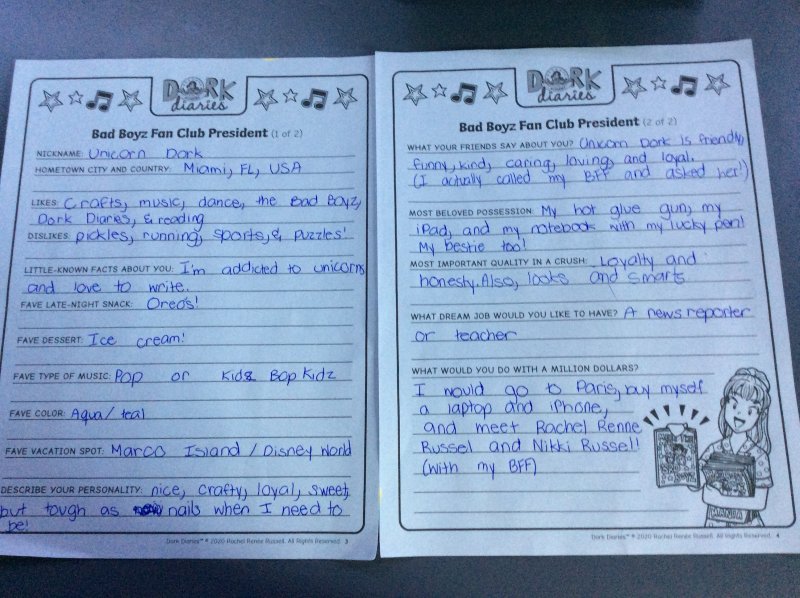 DORK
diaries
Bad Boyz Fan Club President (1 of 2)
NICKNAME: Unicorn Dork
HOMETOWN CITY AND COUNTRY: Miami, FL, USA
LIKES: Crafts, music, dance, the Bad Boyz,
Dork Diaries, & reading
DISLIKES: pickles, running, sports, & puzzles!
LITTLE-KNOWN FACTS ABOUT YOU: I'm addicted to unicorns
and love to write.
FAVE LATE-NIGHT SNACK: Oreos!
FAVE DESSERT: Ice cream!
FAVE TYPE OF MUSIC: Pop or Kidz Bop Kidz
FAVE COLOR: Aqua/teal
FAVE VACATION SPOT: Marco Island / Disney World
DESCRIBE YOUR PERSONALITY: nice, crafty, loyal, sweet,
but tough as nails when I need to
be!
Dork Diaries™ © 2020 Rachel Renée Russell. All Rights Reserved. 3
DORK
diaries
Bad Boyz Fan Club President (2 of 2)
WHAT YOUR FRIENDS SAY ABOUT YOU? Unicorn Dork is friendly,
funny, kind, caring, loving, and loyal.
(I actually called my BFF and asked her!)
MOST BELOVED POSSESSION: My hot glue gun, my
iPad, and my notebook with my lucky pen!
My bestie too!
MOST IMPORTANT QUALITY IN A CRUSH: Loyalty and
honesty. Also, looks and smarts
WHAT DREAM JOB WOULD YOU LIKE TO HAVE? A news reporter
or teacher
WHAT WOULD YOU DO WITH A MILLION DOLLARS?
I would go to Paris, buy myself
a laptop and iPhone,
and meet Rachel Renne
Russel and Nikki Russel!
(with my BFF)
Dork Diaries™ © 2020 Rachel Renée Russell. All Rights Reserved. 4